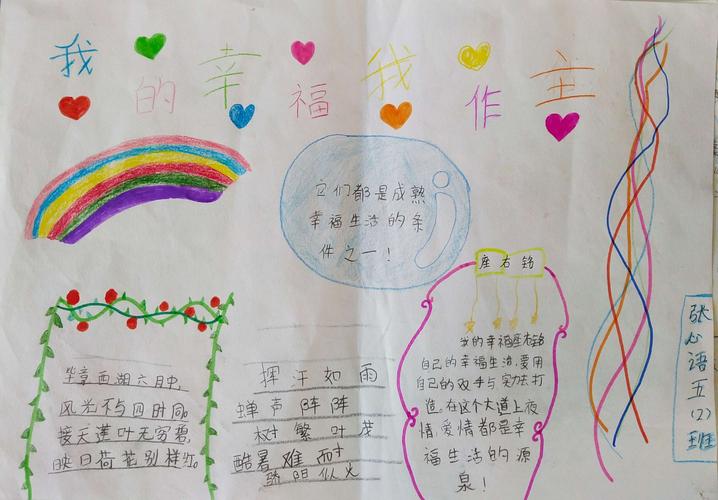 我的幸福我作主
它们都是成熟
幸福生活的条
件之一！
毕竟西湖六月中,
风光不与四时同。
接天莲叶无穷碧,
映日荷花别样红。
挥汗如雨
蝉声阵阵
树繁叶茂
酷暑难耐
骄阳似火
座右铭
的幸福座右铭
自己的幸福生活,要用
自己的双手与实力去打
造。在这个大道上友
情、爱情都是幸
福生活的源
泉！
张心语五(2)班